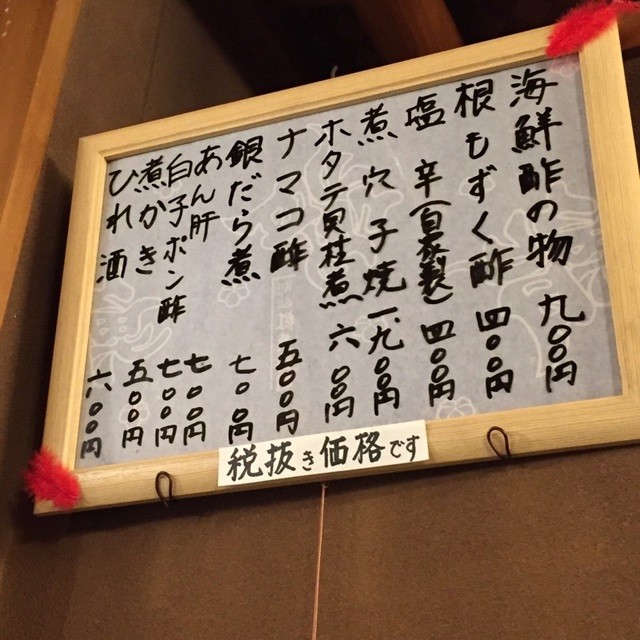 海鮮酢の物 九〇〇円
根もずく酢 四〇〇円
塩辛(自家製) 四〇〇円
煮穴子焼 一、九〇〇円
ホタテ貝柱煮 六〇〇円
ナマコ酢 五〇〇円
銀だら煮 七〇〇円
あん肝 七〇〇円
白子ポン酢 七〇〇円
煮かき 五〇〇円
ひれ酒 六〇〇円
税抜き価格です